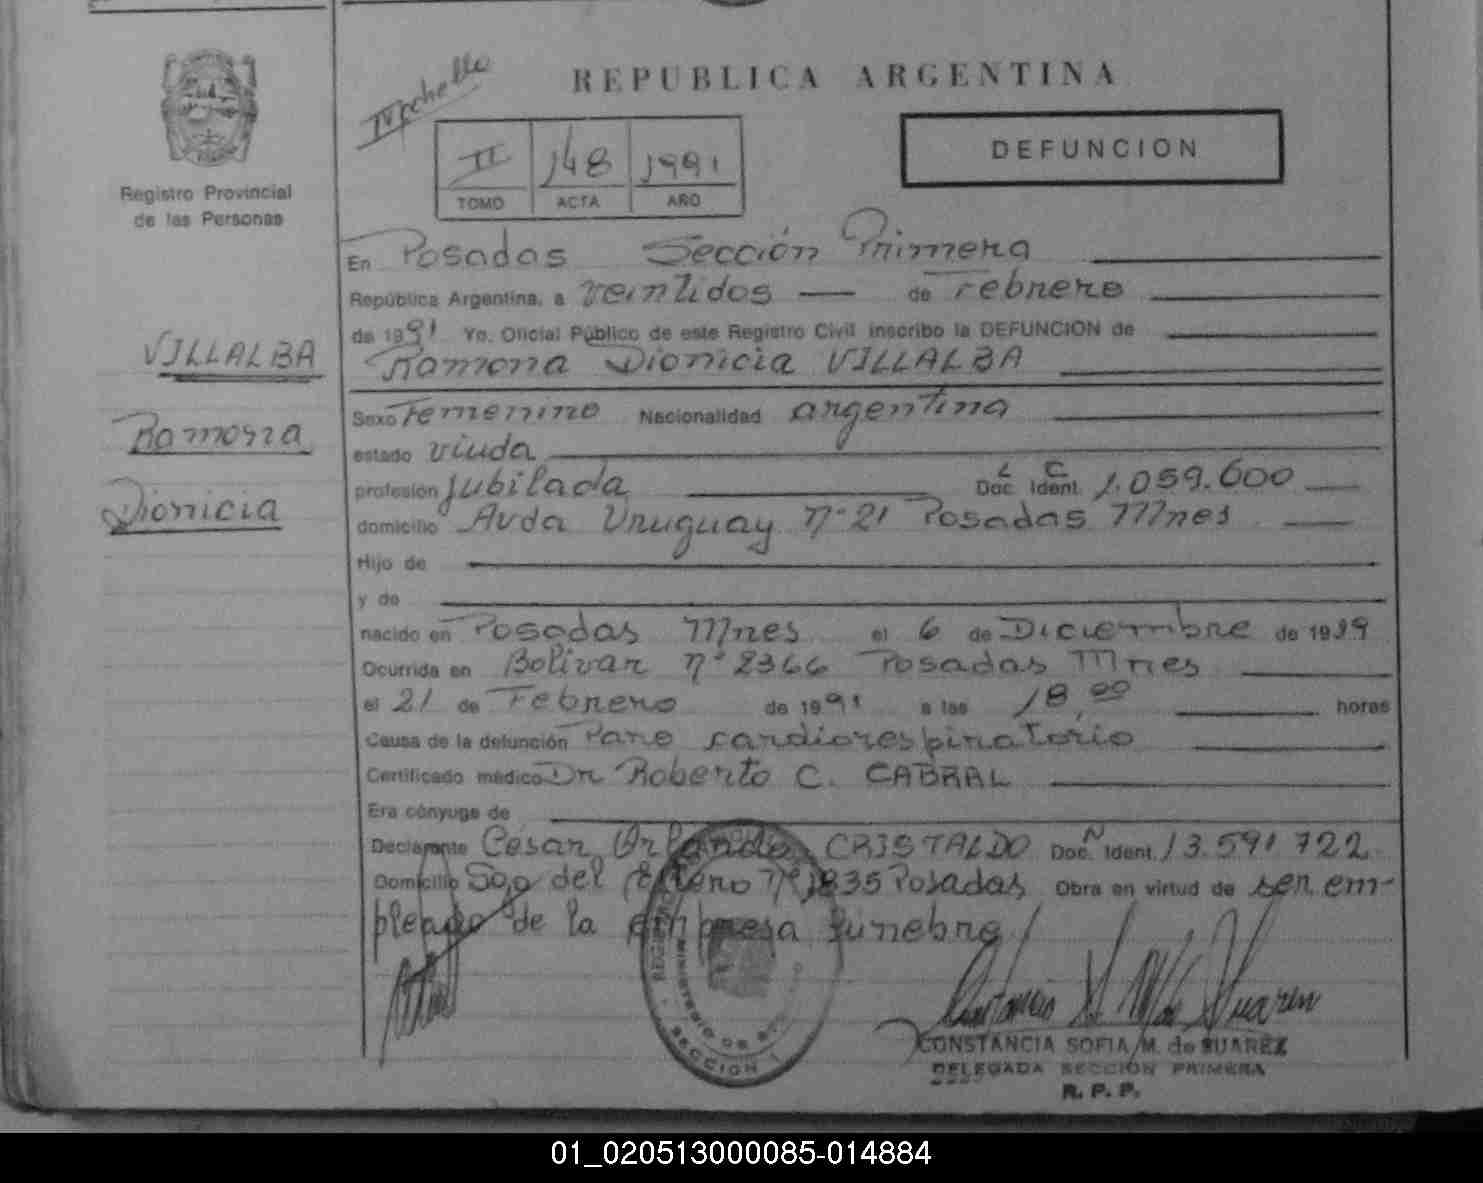 REPUBLICA ARGENTINA
DEFUNCION
II 148 1991
TOMO ACTA AÑO
Registro Provincial
de las Personas
VILLALBA
Ramona
Dionicia
En Posadas Sección Primera
República Argentina, a veintidos — de Febrero
de 1991 Yo, Oficial Público de este Registro Civil inscribo la DEFUNCION de
Ramona Dionicia VILLALBA
Sexo Femenino Nacionalidad argentina
estado viuda
profesión jubilada L C Doc. Ident. 1.059.600
domicilio Avda Uruguay nº 21 Posadas Mnes
Hijo de
y de
nacido en Posadas Mnes el 6 de Diciembre de 19
Ocurrida en Bolivar nº 2366 Posadas Mnes
el 21 de Febrero de 1991 a las 18,00 horas
Causa de la defunción Paro cardiorespiratorio
Certificado médico Dr Roberto C. CABRAL
Era cónyuge de
Declarante César Orlando CRISTALDO Doc. N Ident. 13.591 722
Domicilio Sgo del Estero Nº 1835 Posadas Obra en virtud de ser em-
pleado de la empresa funebre
SECCION 1
CONSTANCIA SOFIA M. de SUAREZ
DELEGADA SECCION PRIMERA
R. P. P.
01_020513000085-014884